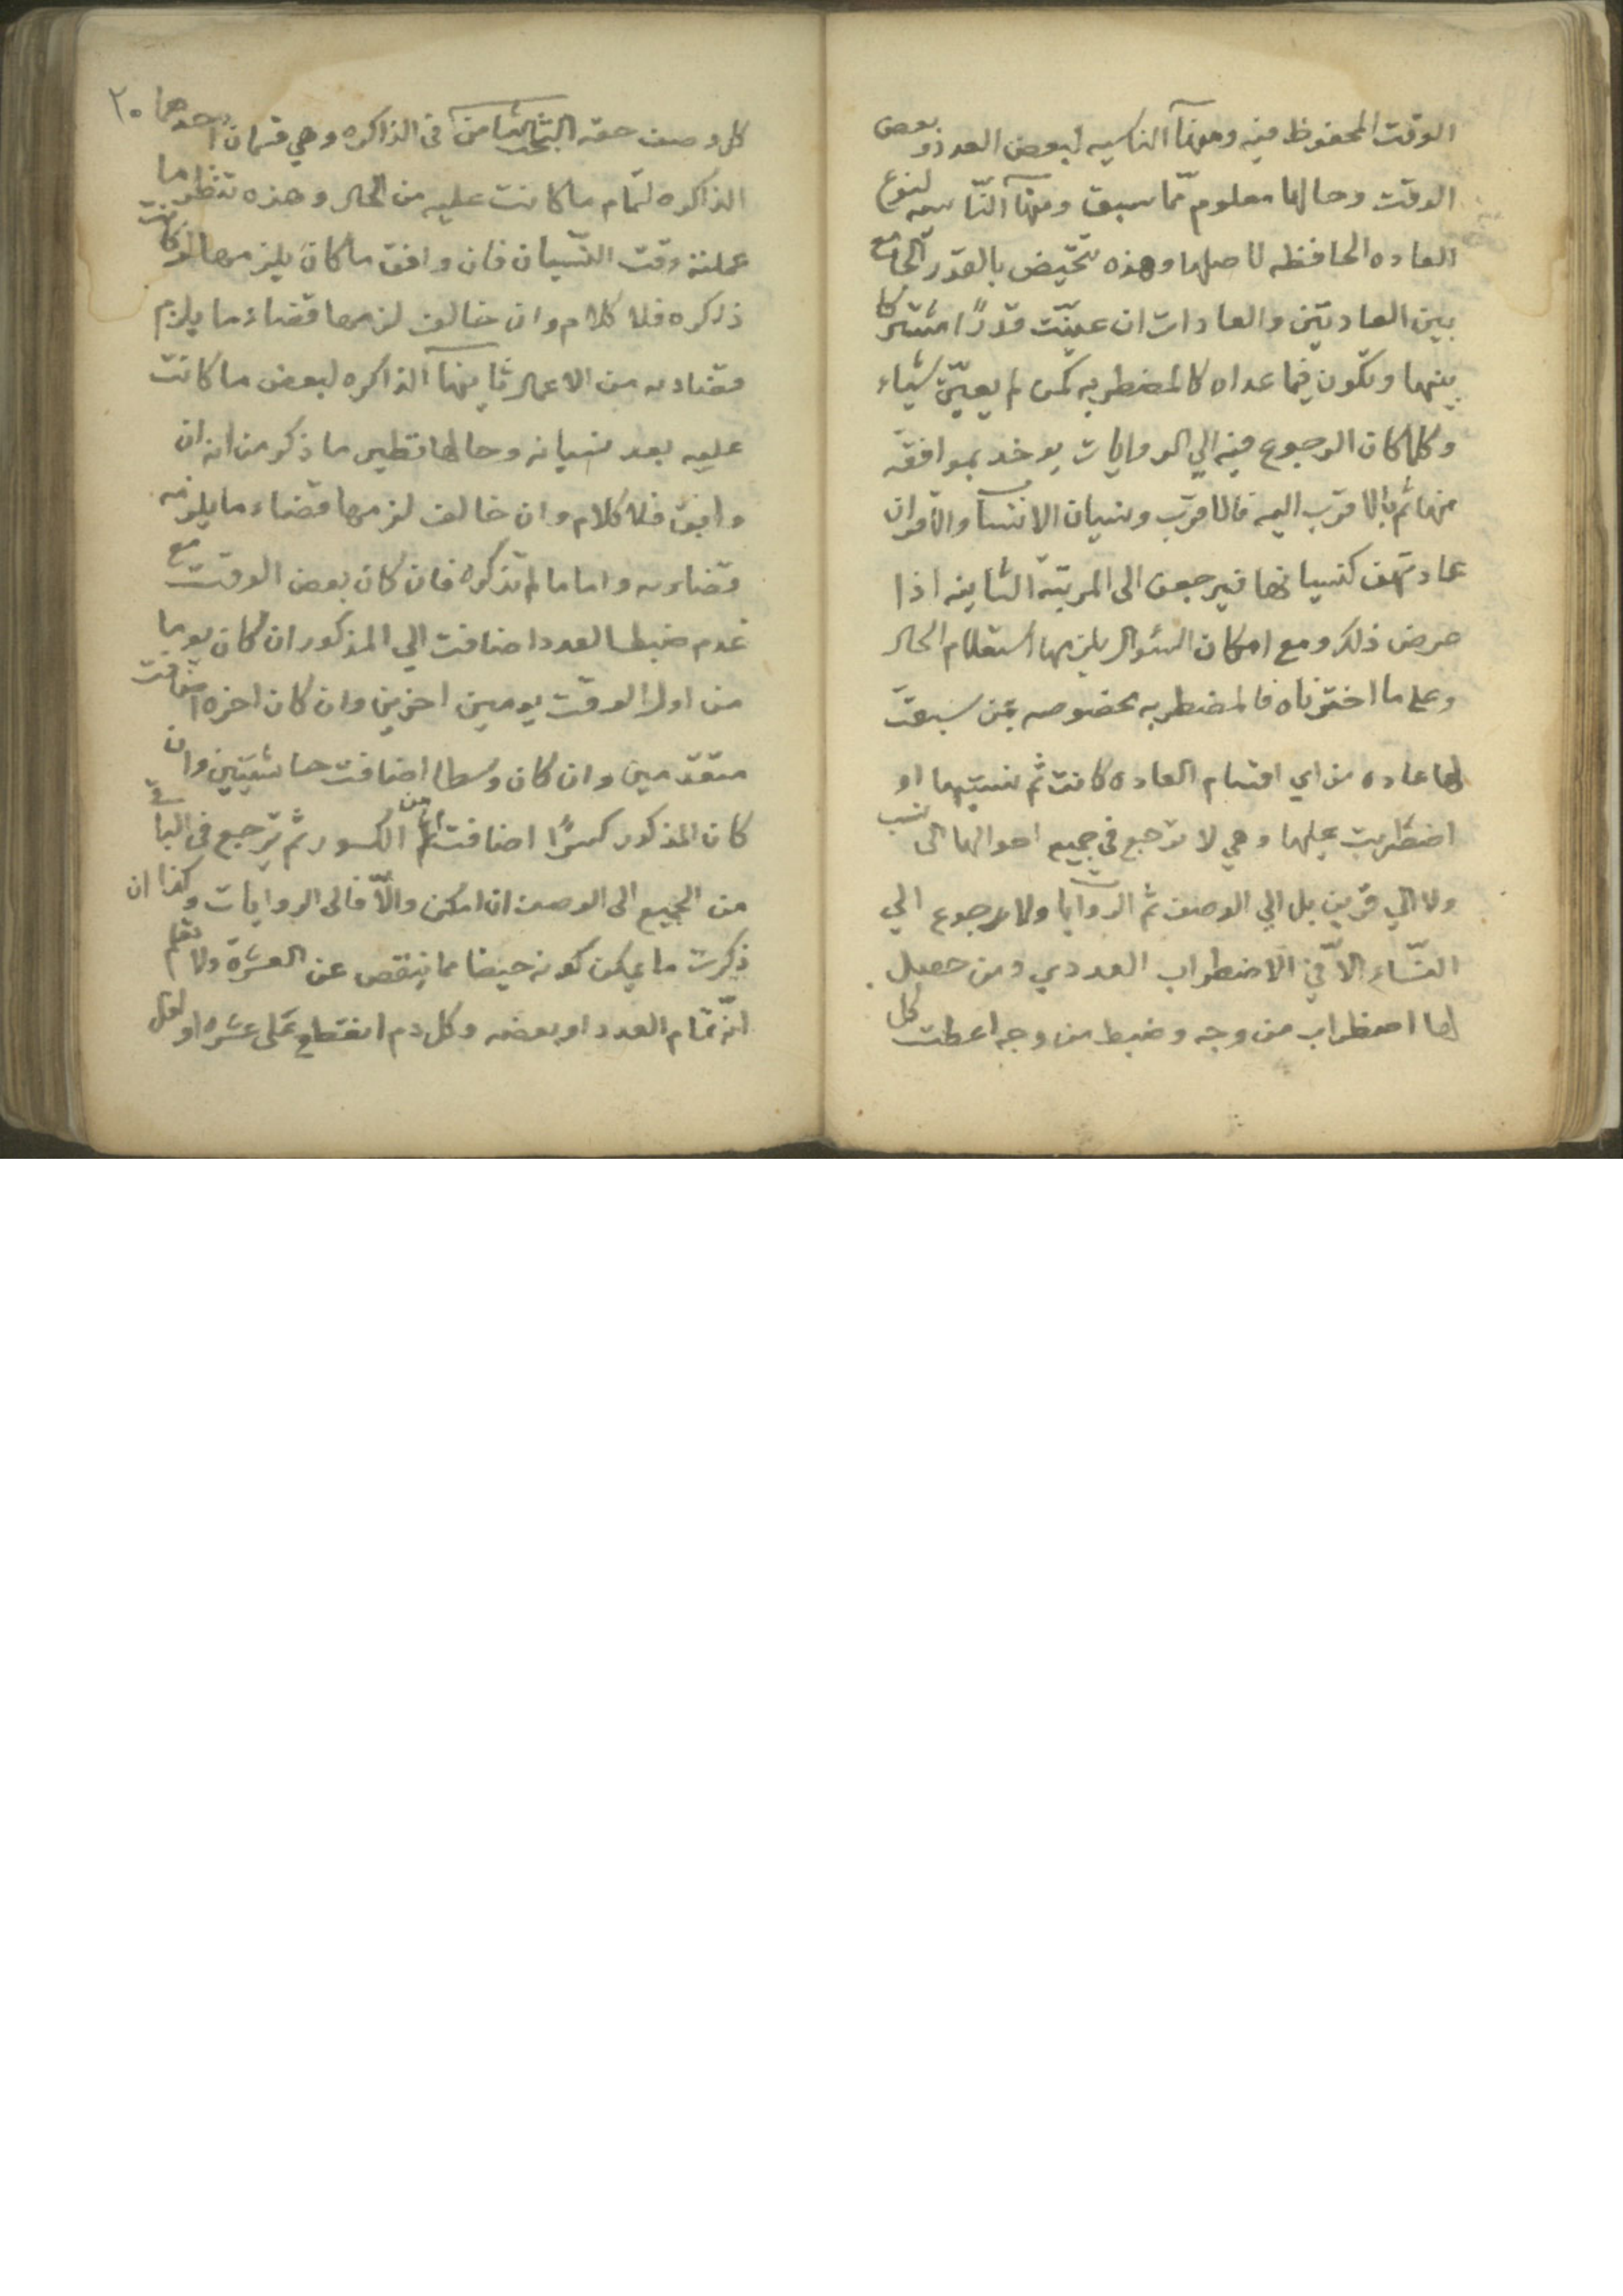 الوقت المحفوظ فيه ومنها الناسيه لبعض العدد وبعض
الوقت وحالها معلوم مما سبق ومنها الناسيه لنوع
العاده الحافظه لاصلها وهذه تتحيض بالقدر الجامع
بين العادتين والعادات ان عينت قدرًا مشتركا
بينهما وتكون فيما عداه كالمضطربه كمن لم يعين شياء
وكلما كان الرجوع فيه الي الروايات يوخد بموافقه
منها ثم بالاقرب اليه فالاقرب ونسيان الانساب والاقران
عادتهن كنسيانها فيرجعن الى المرتبة الثانيه اذا
عرض ذلك ومع امكان السئوال يلزمها استعلام الحال
وعلى ما اخترناه فالمضطربه مخصوصه بمن سبقت
لها عاده من اي اقسام العاده كانت ثم نسيتها او
اضطربت عليها وهي لا ترجع في جميع احوالها الى نسب
ولا الي قرين بل الي الوصف ثم الروايات ولا رجوع الي
النساء الا في الاضطراب العددي ومن حصل
لها اضطراب من وجه وضبط من وجه اعطت كل
٢٠
كل وصف حقه البحث الثامن في الذاكره وهي قسمان احدهما
الذاكره لتمام ما كانت عليه من الحال وهذه تنظر ما
عملته وقت النسيان فان وافق ما كان يلزمها لو كانت
ذاكره فلا كلام وان خالف لزمها قضاء ما يلزم
قضاءه من الاعمال ثانيها الذاكره لبعض ما كانت
عليه بعد نسيانه وحالها نظير ما ذكر من انه ان
وافق فلا كلام وان خالف لزمها قضاء ما يلزمه
قضاءه واما ما لم تذكره فان كان بعض الوقت مع
عدم ضبط العدد اضافت الي المذكور ان كان يوما
من اول الوقت يومين اخرين وان كان اخره اضافت
متقدمين وان كان وسطا اضافت حاشيتين وان
كان المذكور كسرًا اضافت اليها من الكسور ثم ترجع في الباقي
من الجميع الى الوصف ان امكن والا فالى الروايات وكذا ان
ذكرت ما يمكن كونه حيضا مما ينقص عن العشرة ولا تعلم
انه تمام العدد او بعضه وكل دم انقطع على عشره او اقل